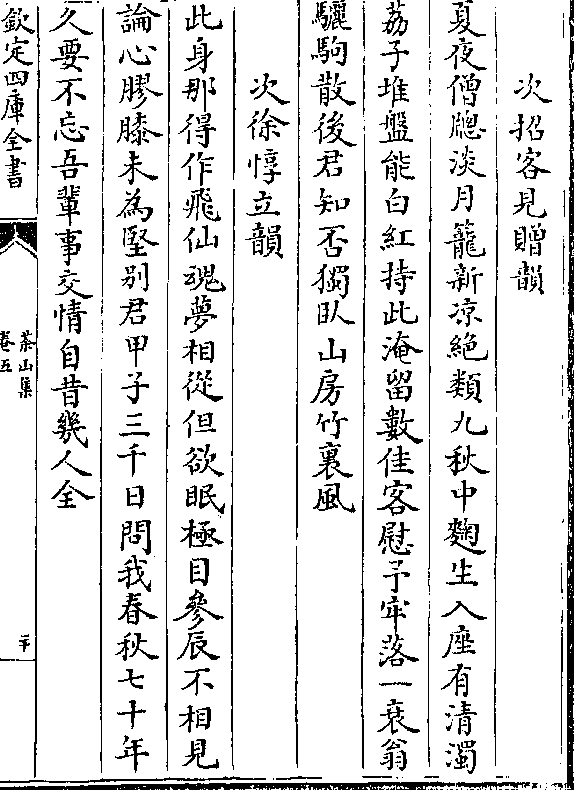 次招客見贈韻
夏夜僧牕淡月籠新凉絶類九秋中麴生入座有清濁
荔子堆盤能白紅持此淹留數佳客慰予牢落一衰翁
驪駒散後君知否獨臥山房竹裏風
次徐惇立韻
此身那得作飛仙魂夢相從但欲眠極目參辰不相見
論心膠膝未為堅别君甲子三千日問我春秋七十年
久要不忘吾輩事交情自昔幾人全
欽定四庫全書
茶山集
卷五
二十